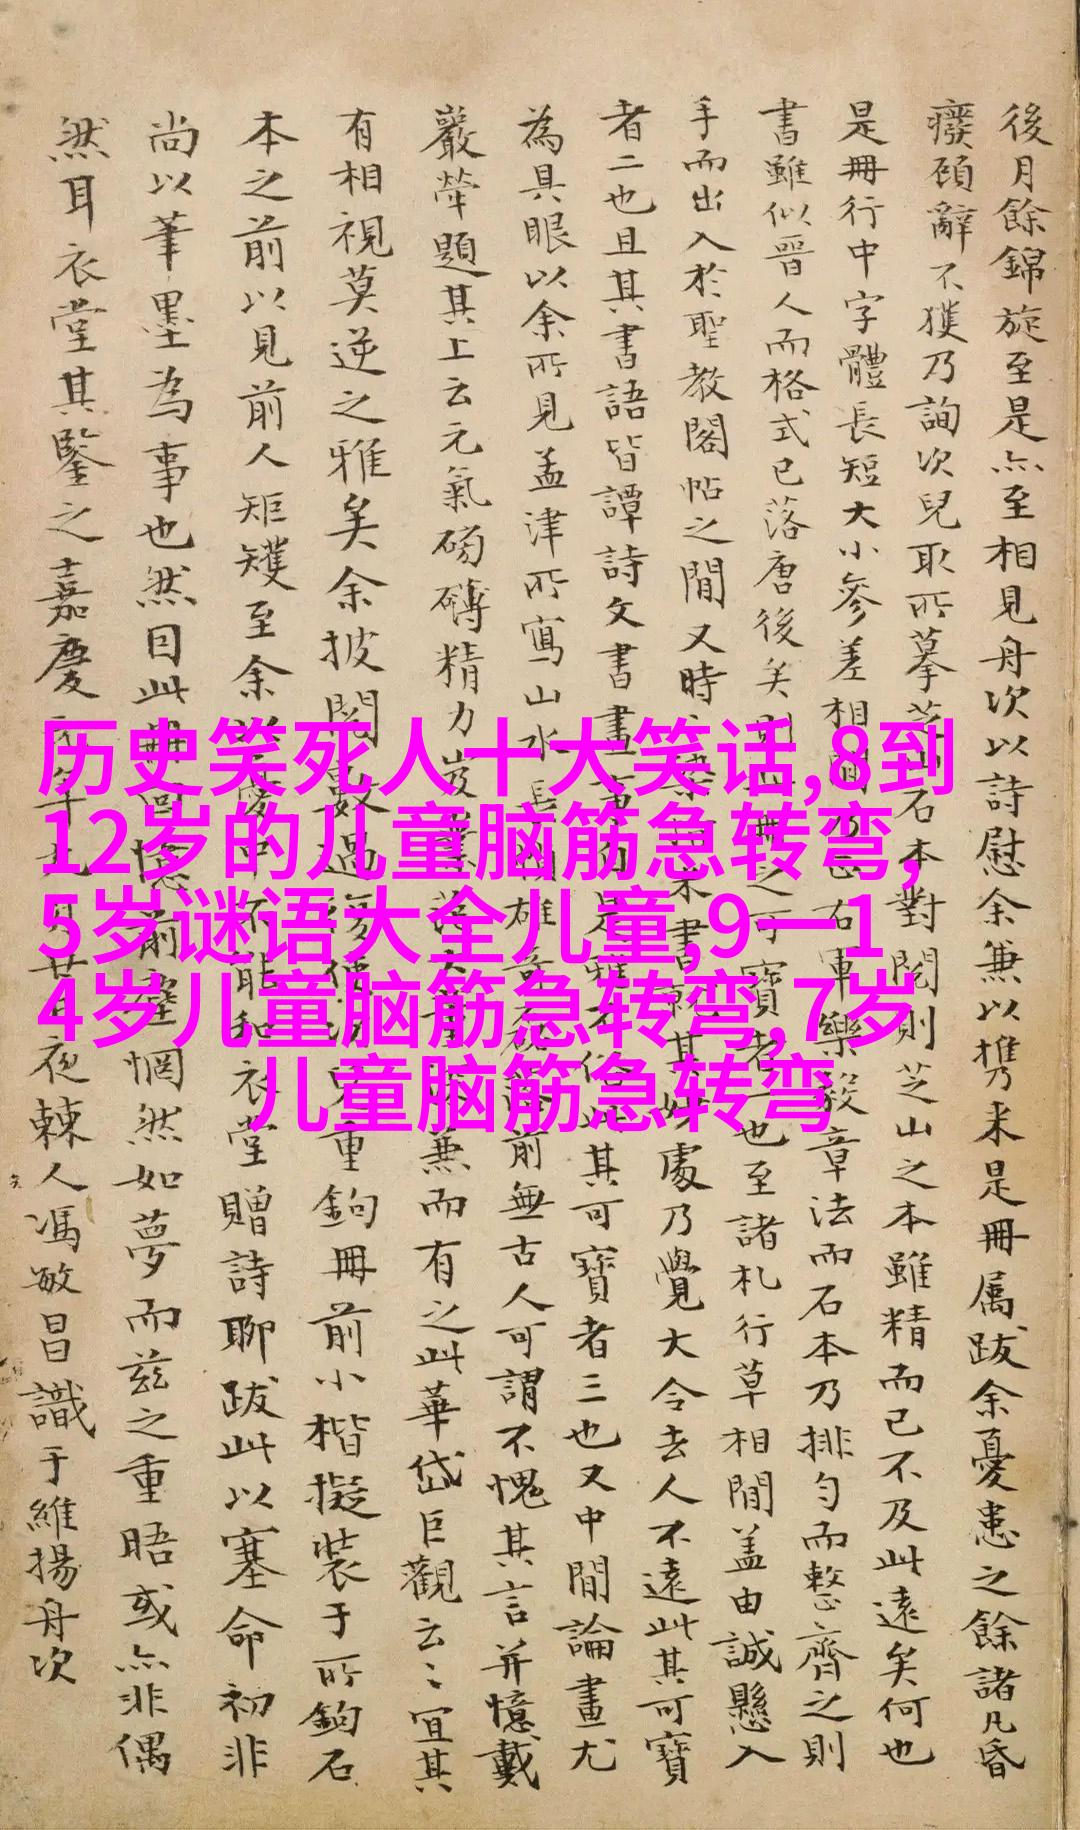 後月餘錦旋至是亦至相見舟次以詩慰余兼以携来是冊属跋余憂患之餘諸凡昏
癈頋辭不獲乃詢次兒取所摹芝山石本對閱則芝山之本雖精而已不及此遠矣何也
是冊行中字體長短大小參差相間乃右軍樂毅章法而石本乃排勻而整齊之則
書雖似晋人而格式已落唐後矣則此冊之可寶者一也至諸札行草相間盖由誠懸入
手而出入於聖教閣帖之間又時書其妙處乃覺大令去人不遠此其可寶
者二也且其書語皆譚詩文書畫是雅俗此其可寶者三也又中間論畫尤
為具眼以余所見孟津所寫山水長雄前無古人可謂不愧其言并憶戴
巖犖題其上云元氣磅礴精力兼而有之此華岱巨觀云〻宜其
有相視莫逆之雅矣余披閱數過重鉤冊前小楷擬裝于所鈎石
本之前以見前人矩矱至余不能和衣堂贈詩聊跋此以塞命初非
尚以筆墨為事也然目此冊回憶前塵惘然如夢而兹之重晤或亦非偶
然耳衣堂其鑒之嘉慶年九月廿夜棘人馮敏昌識于維揚舟次
历史笑死人十大笑话,8到
12岁的儿童脑筋急转弯,
5岁谜语大全儿童,9一1
4岁儿童脑筋急转弯,7岁
儿童脑筋急转弯